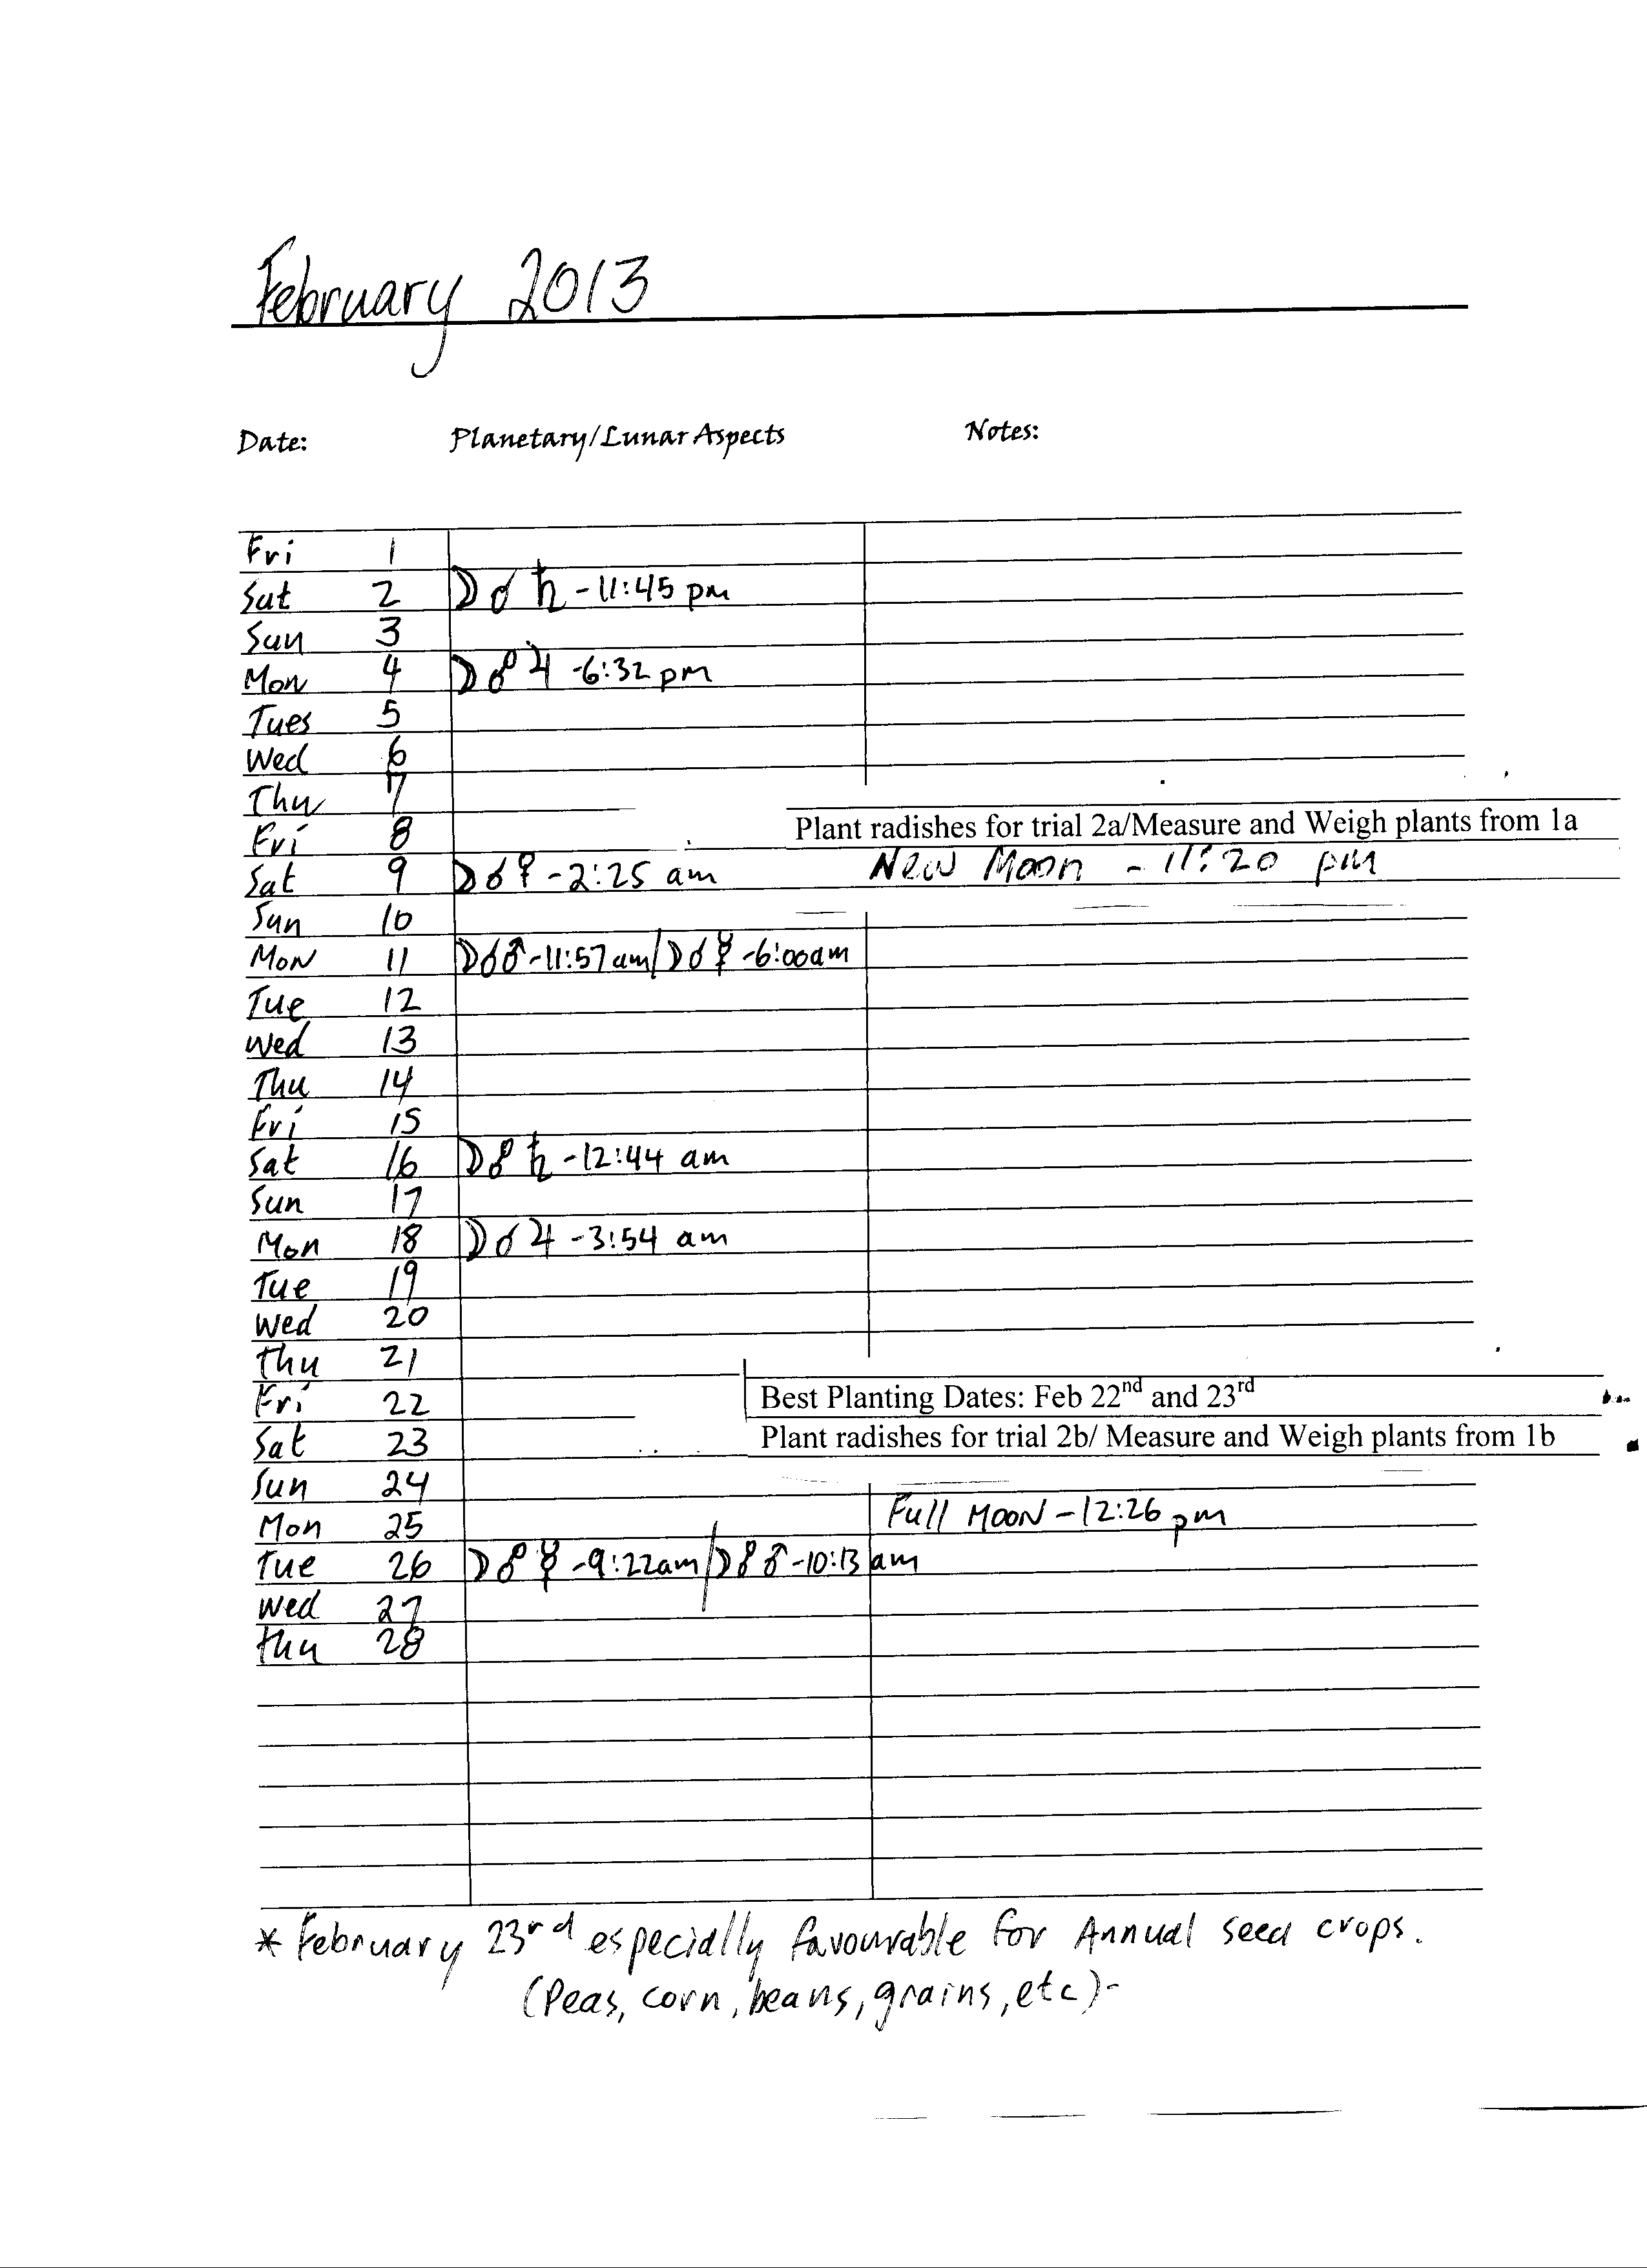 February 2013
Date: Planetary/Lunar Aspects Notes:
Fri 1
Sat 2 ☽ ☌ ♄ - 11:45 pm
Sun 3
Mon 4 ☽ ☍ ♃ - 6:32 pm
Tues 5
Wed 6
Thu 7
Fri 8 Plant radishes for trial 2a/Measure and Weigh plants from 1a
Sat 9 ☽ ☌ ♀ - 2:25 am New Moon - 11:20 pm
Sun 10
Mon 11 ☽ ☌ ♂ - 11:57 am/☽ ☌ ☿ - 6:00am
Tue 12
Wed 13
Thu 14
Fri 15
Sat 16 ☽ ☍ ♄ - 12:44 am
Sun 17
Mon 18 ☽ ☌ ♃ - 3:54 am
Tue 19
Wed 20
Thu 21
Fri 22 Best Planting Dates: Feb 22nd and 23rd
Sat 23 Plant radishes for trial 2b/ Measure and Weigh plants from 1b
Sun 24
Mon 25 Full Moon - 12:26 pm
Tue 26 ☽ ☍ ☿ - 9:22am/☽ ☍ ♂ - 10:13 am
Wed 27
Thu 28
* February 23rd especially favourable for Annual seed crops.
(Peas, corn, beans, grains, etc)-